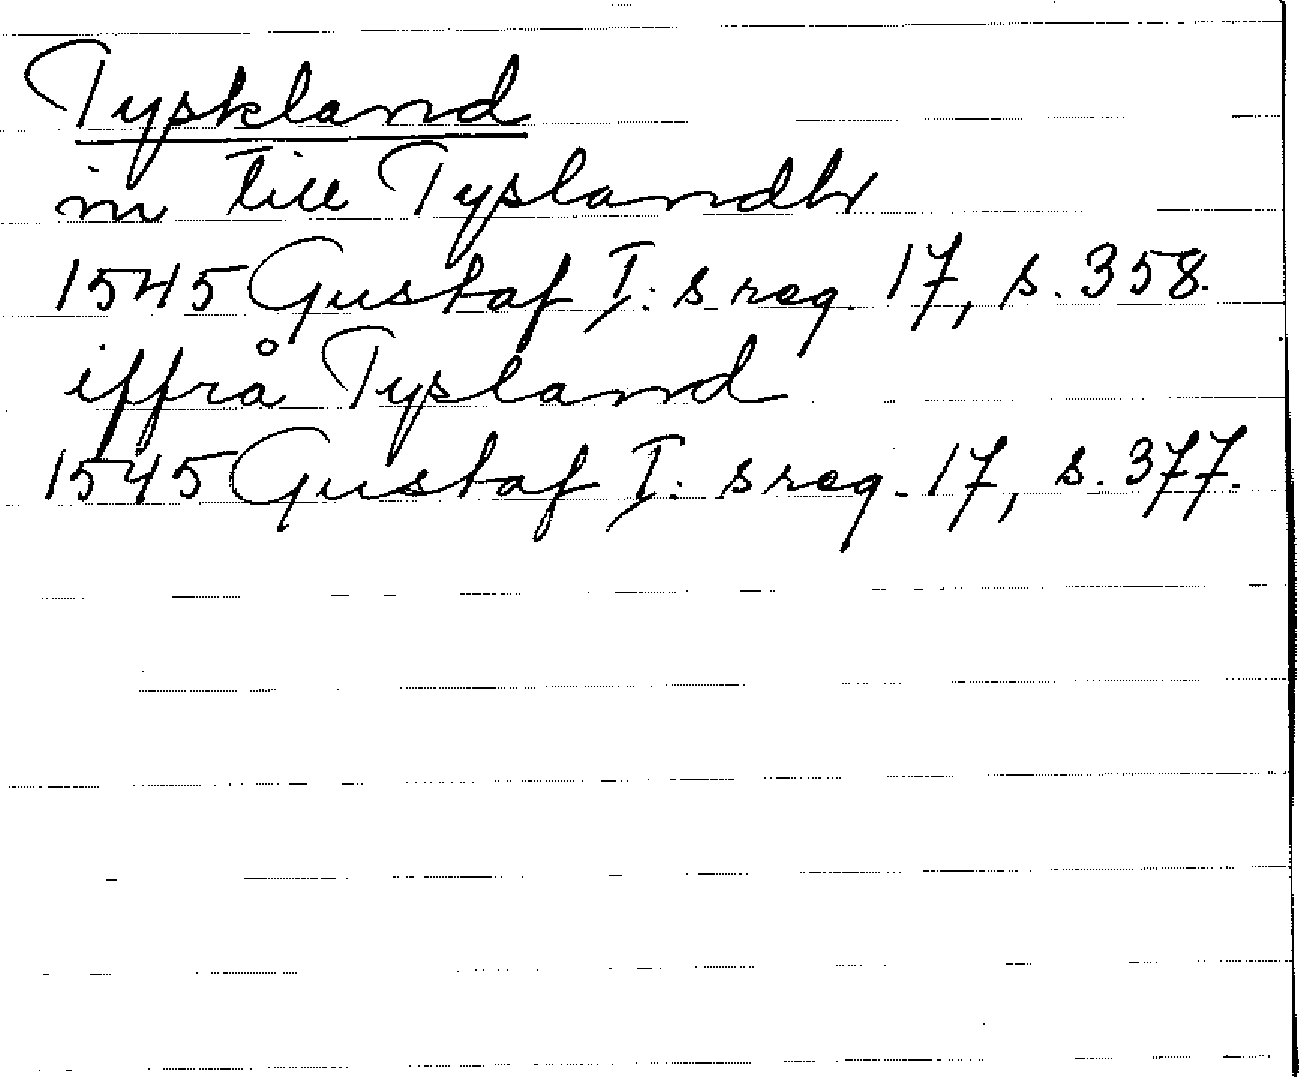 Tyskland
in till Tyslandh
1545 Gustaf I: s reg. 17, s. 358.
iffrå Tysland
1545 Gustaf I: s reg. 17, s. 377.